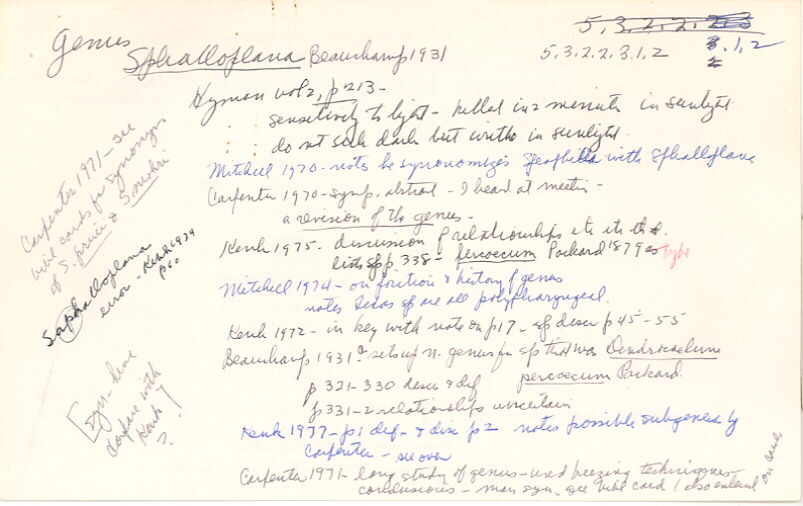 5.3.2.2.2.3
3.1.2
Genus
Sphalloplana Beauchamp 1931
5.3.2.2.3.1.2
Hyman vol 2, p 213-
sensitivity to light - killed in 2 minutes in sunlight
do not seek dark but writhe in sunlight
Mitchell 1970 - notes he synonomizes Speophila with Sphalloplana
Carpenter 1970 - symp. abstract - I heard at meetin -
a revision of the genus -
Kenk 1975 - discussion of relationships etc
lists spp 338 - percoecum Packard 1879 as type
Mitchell 1974 - on position & history of genus
notes Texas sp are all polypharyngeal.
Kenk 1972 - in key with note on p17 - sp descr p 45-55
Beauchamp 1931a sets up n. genus for sp that was Dendrocoelum
percoecum Packard.
p 321-330 descr & def
p 331-2 relationships uncertain
Kenk 1977 - p1 def - & disc p2 notes possible subgenera by
Carpenter - see over
Carpenter 1971 - long study of genus - used freezing techniques -
conclusions - many syn, see bibl card / also on card
Carpenter 1971 - see
bibl cards for synonyms
of S. pricei & S. mohri
Saphalloplana
error - Kenk 1974
p60
[Syn - have
compare with
Kenk]
?